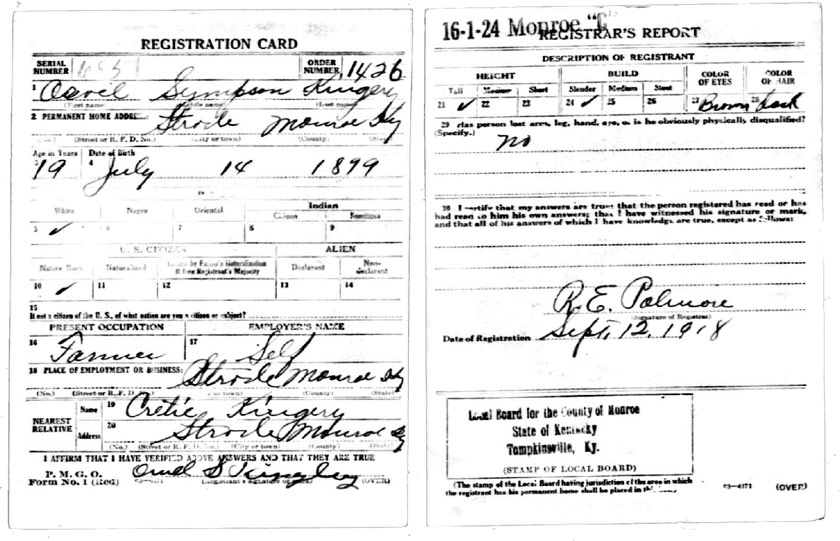 REGISTRATION CARD
SERIAL NUMBER
ORDER NUMBER 1426
1 Simpson Kingery
(First name) (Middle name) (Last name)
2 PERMANENT HOME ADDRESS: Strode Monroe Ky
(No.) (Street or R. F. D. No.) (City or town) (County) (State)
Age in Years Date of Birth
3 19 4 July 14 1899
White Negro Oriental Indian
Citizen Noncitizen
5 ✓ 6 7 8 9
U. S. CITIZEN ALIEN
Native Born Naturalized Citizen by Father's Naturalization Before Registrant's Majority Declarant Non-declarant
10 ✓ 11 12 13 14
15
If not a citizen of the U. S., of what nation are you a citizen or subject?
PRESENT OCCUPATION EMPLOYER'S NAME
16 Farmer 17 Self
18 PLACE OF EMPLOYMENT OR BUSINESS: Strode Monroe Ky
(No.) (Street or R. F. D. No.) (City or town) (County) (State)
NEAREST RELATIVE
Name 19 Cretie Kingery
Address 20 Strode Monroe Ky
(No.) (Street or R. F. D. No.) (City or town) (County) (State)
I AFFIRM THAT I HAVE VERIFIED ABOVE ANSWERS AND THAT THEY ARE TRUE
P. M. G. O.
Form No. 1 (Red) 03-6171 (Registrant's signature or mark) (OVER)
16-1-24 Monroe "C"
REGISTRAR'S REPORT
DESCRIPTION OF REGISTRANT
HEIGHT BUILD COLOR OF EYES COLOR OF HAIR
Tall Medium Short Slender Medium Stout
21 ✓ 22 23 24 ✓ 25 26 27 Brown 28 Dark
29 Has person lost arm, leg, hand, eye, or is he obviously physically disqualified?
(Specify.) no
30 I certify that my answers are true; that the person registered has read or has
had read to him his own answers; that I have witnessed his signature or mark,
and that all of his answers of which I have knowledge are true, except as follows:
R. E. Palmore
(Signature of Registrar)
Date of Registration Sept, 12, 1918
Local Board for the County of Monroe
State of Kentucky
Tompkinsville, Ky.
(STAMP OF LOCAL BOARD)
(The stamp of the Local Board having jurisdiction of the area in which
the registrant has his permanent home shall be placed in this
03-6171 (OVER)